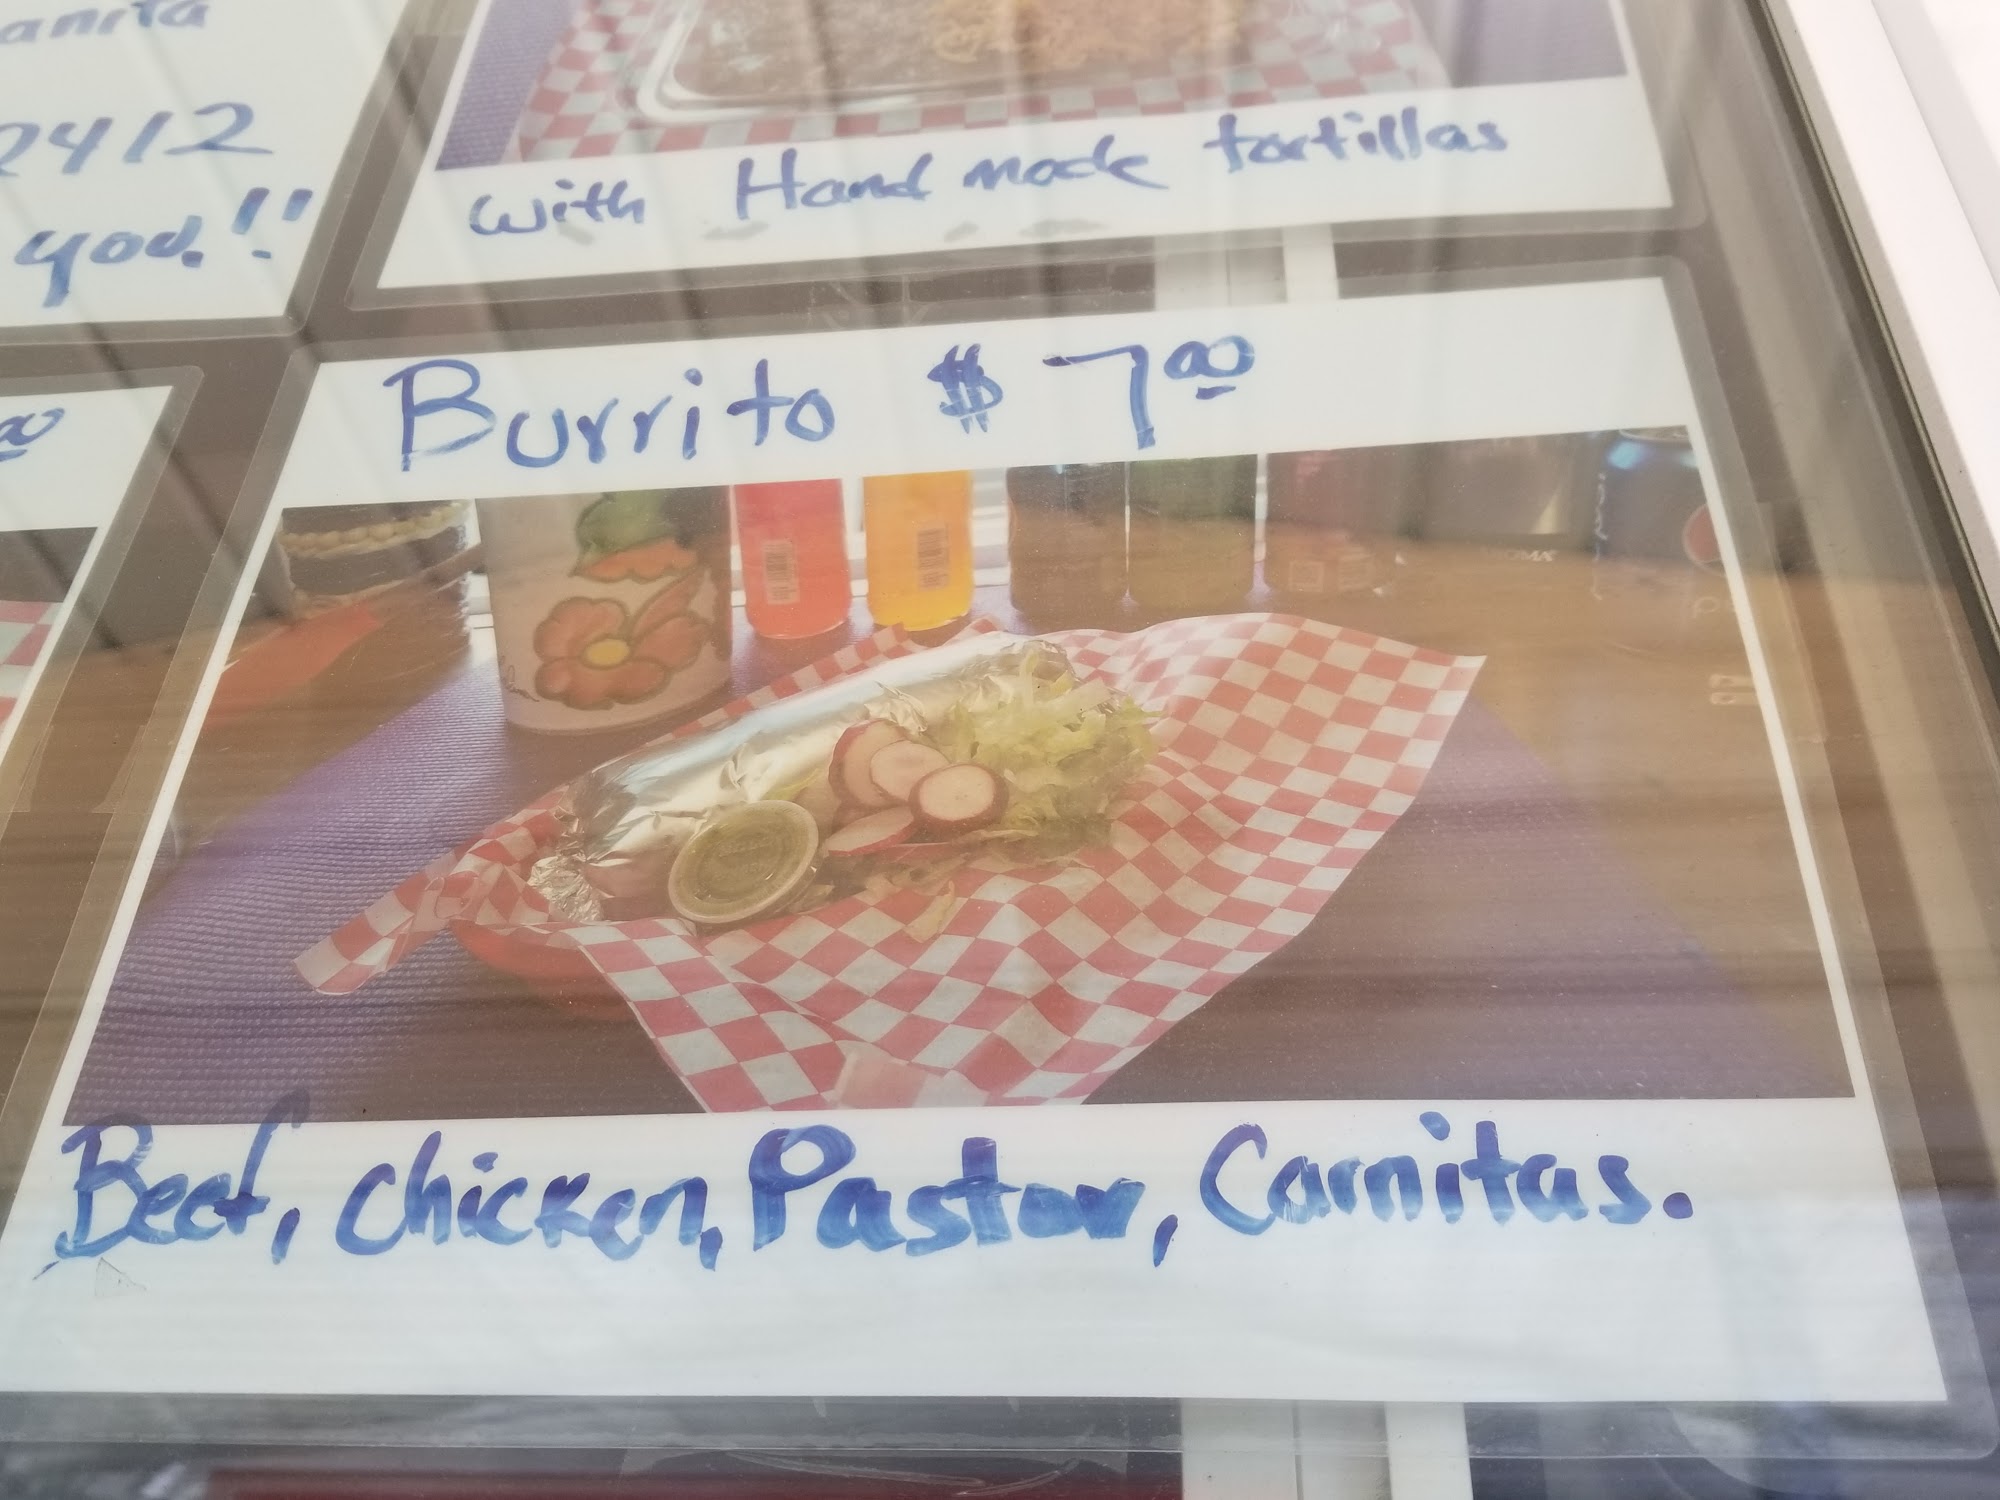 2412
you.!!
with Hand made tortillas
Burrito $ 7.00
00
Beef, chicken, Pastor, Carnitas.